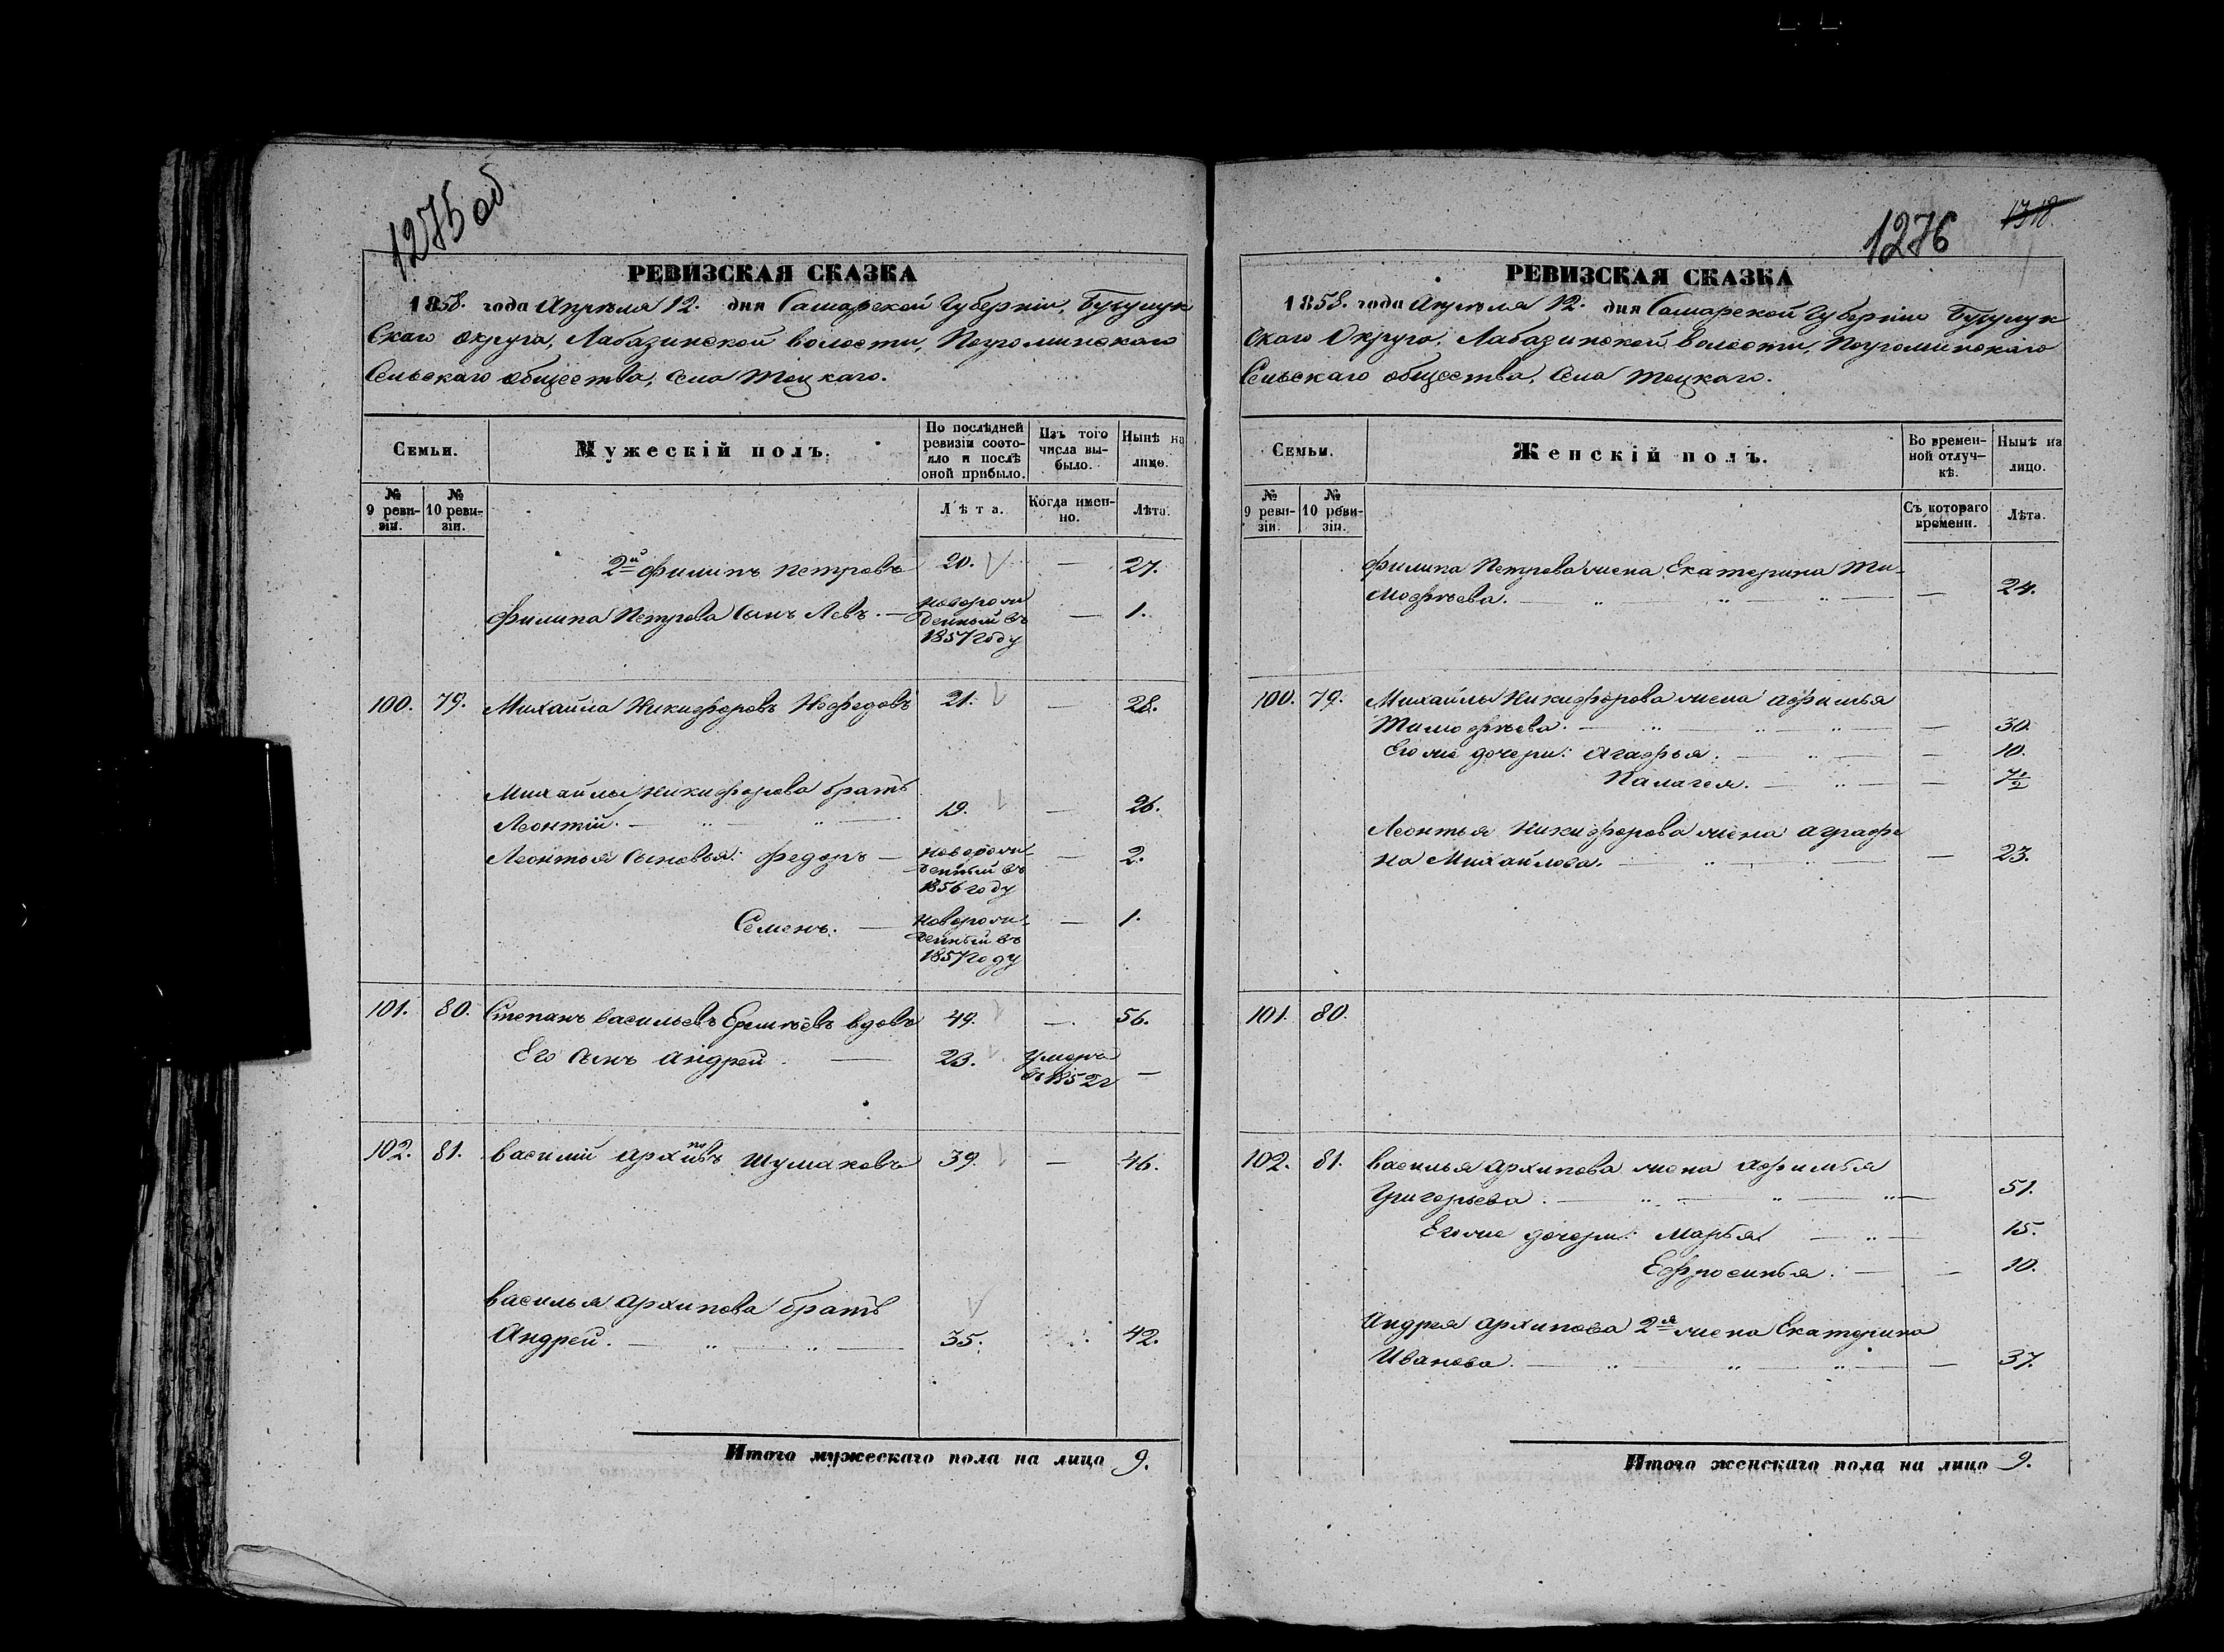 1275 об
РЕВИЗСКАЯ СКАЗКА
1858. года Апрѣля 12. дня Самарской Губерніи, Бузулук
скаго округа, Лабазинской волости, Погроминскаго
Сельскаго общества, села Тоцкаго.
Семьи.
Мужескій полъ.
По послѣдней ревизіи состояло и послѣ оной прибыло.
Изъ того числа выбыло.
Нынѣ на лицо.
№ 9 ревизіи.
№ 10 ревизіи.
Лѣта.
Когда именно.
Лѣта.
2й Филипъ Петровъ 20. — 27.
Филипа Петрова сынъ Левъ. — новорожденный въ 1857 году — 1.
100. 79. Михайла Никифоровъ Нефедовъ 21. — 28.
Михайлы Никифорова братъ
Леонтій. — 19. — 26.
Леонтья сыновья: Федоръ — новорожденный въ 1856 году — 2.
Семенъ. — новорожденный въ 1857 году — 1.
101. 80. Степанъ Васильевъ Еремѣевъ вдовъ 49. — 56.
Его сынъ Андрей. — 23. умеръ въ 1852 г —
102. 81. Василій Архиповъ Шумаковъ 39. — 46.
Василья Архипова братъ
Андрей. — 35. 42.
Итого мужескаго пола на лицо 9.
1276 1318.
РЕВИЗСКАЯ СКАЗКА
1858. года Апрѣля 12. дня Самарской Губерніи Бузулук
скаго Округа, Лабазинской волости, Погроминскаго
Сельскаго общества, села Тоцкаго.
Семьи.
Женскій полъ.
Во временной отлучкѣ.
Нынѣ на лицо.
№ 9 ревизіи.
№ 10 ревизіи.
Съ котораго времени.
Лѣта.
Филипа Петрова жена Екатерина Ти-
мофѣева. — — 24.
100. 79. Михайлы Никифорова жена Афимья
Тимофѣева. — — 30.
Его же дочери: Агафья. — — 10.
Палагея. — — 7½
Леонтья Никифорова жена Аграфе
на Михайлова. — — 23.
101. 80.
102. 81. Василья Архипова жена Афимья
Григорьева. — — 51.
Его же дочери: Марья — 15.
Ефросинья: — — 10.
Андрея Архипова 2я жена Екатерина
Иванова. — — 37.
Итого женскаго пола на лицо 9.